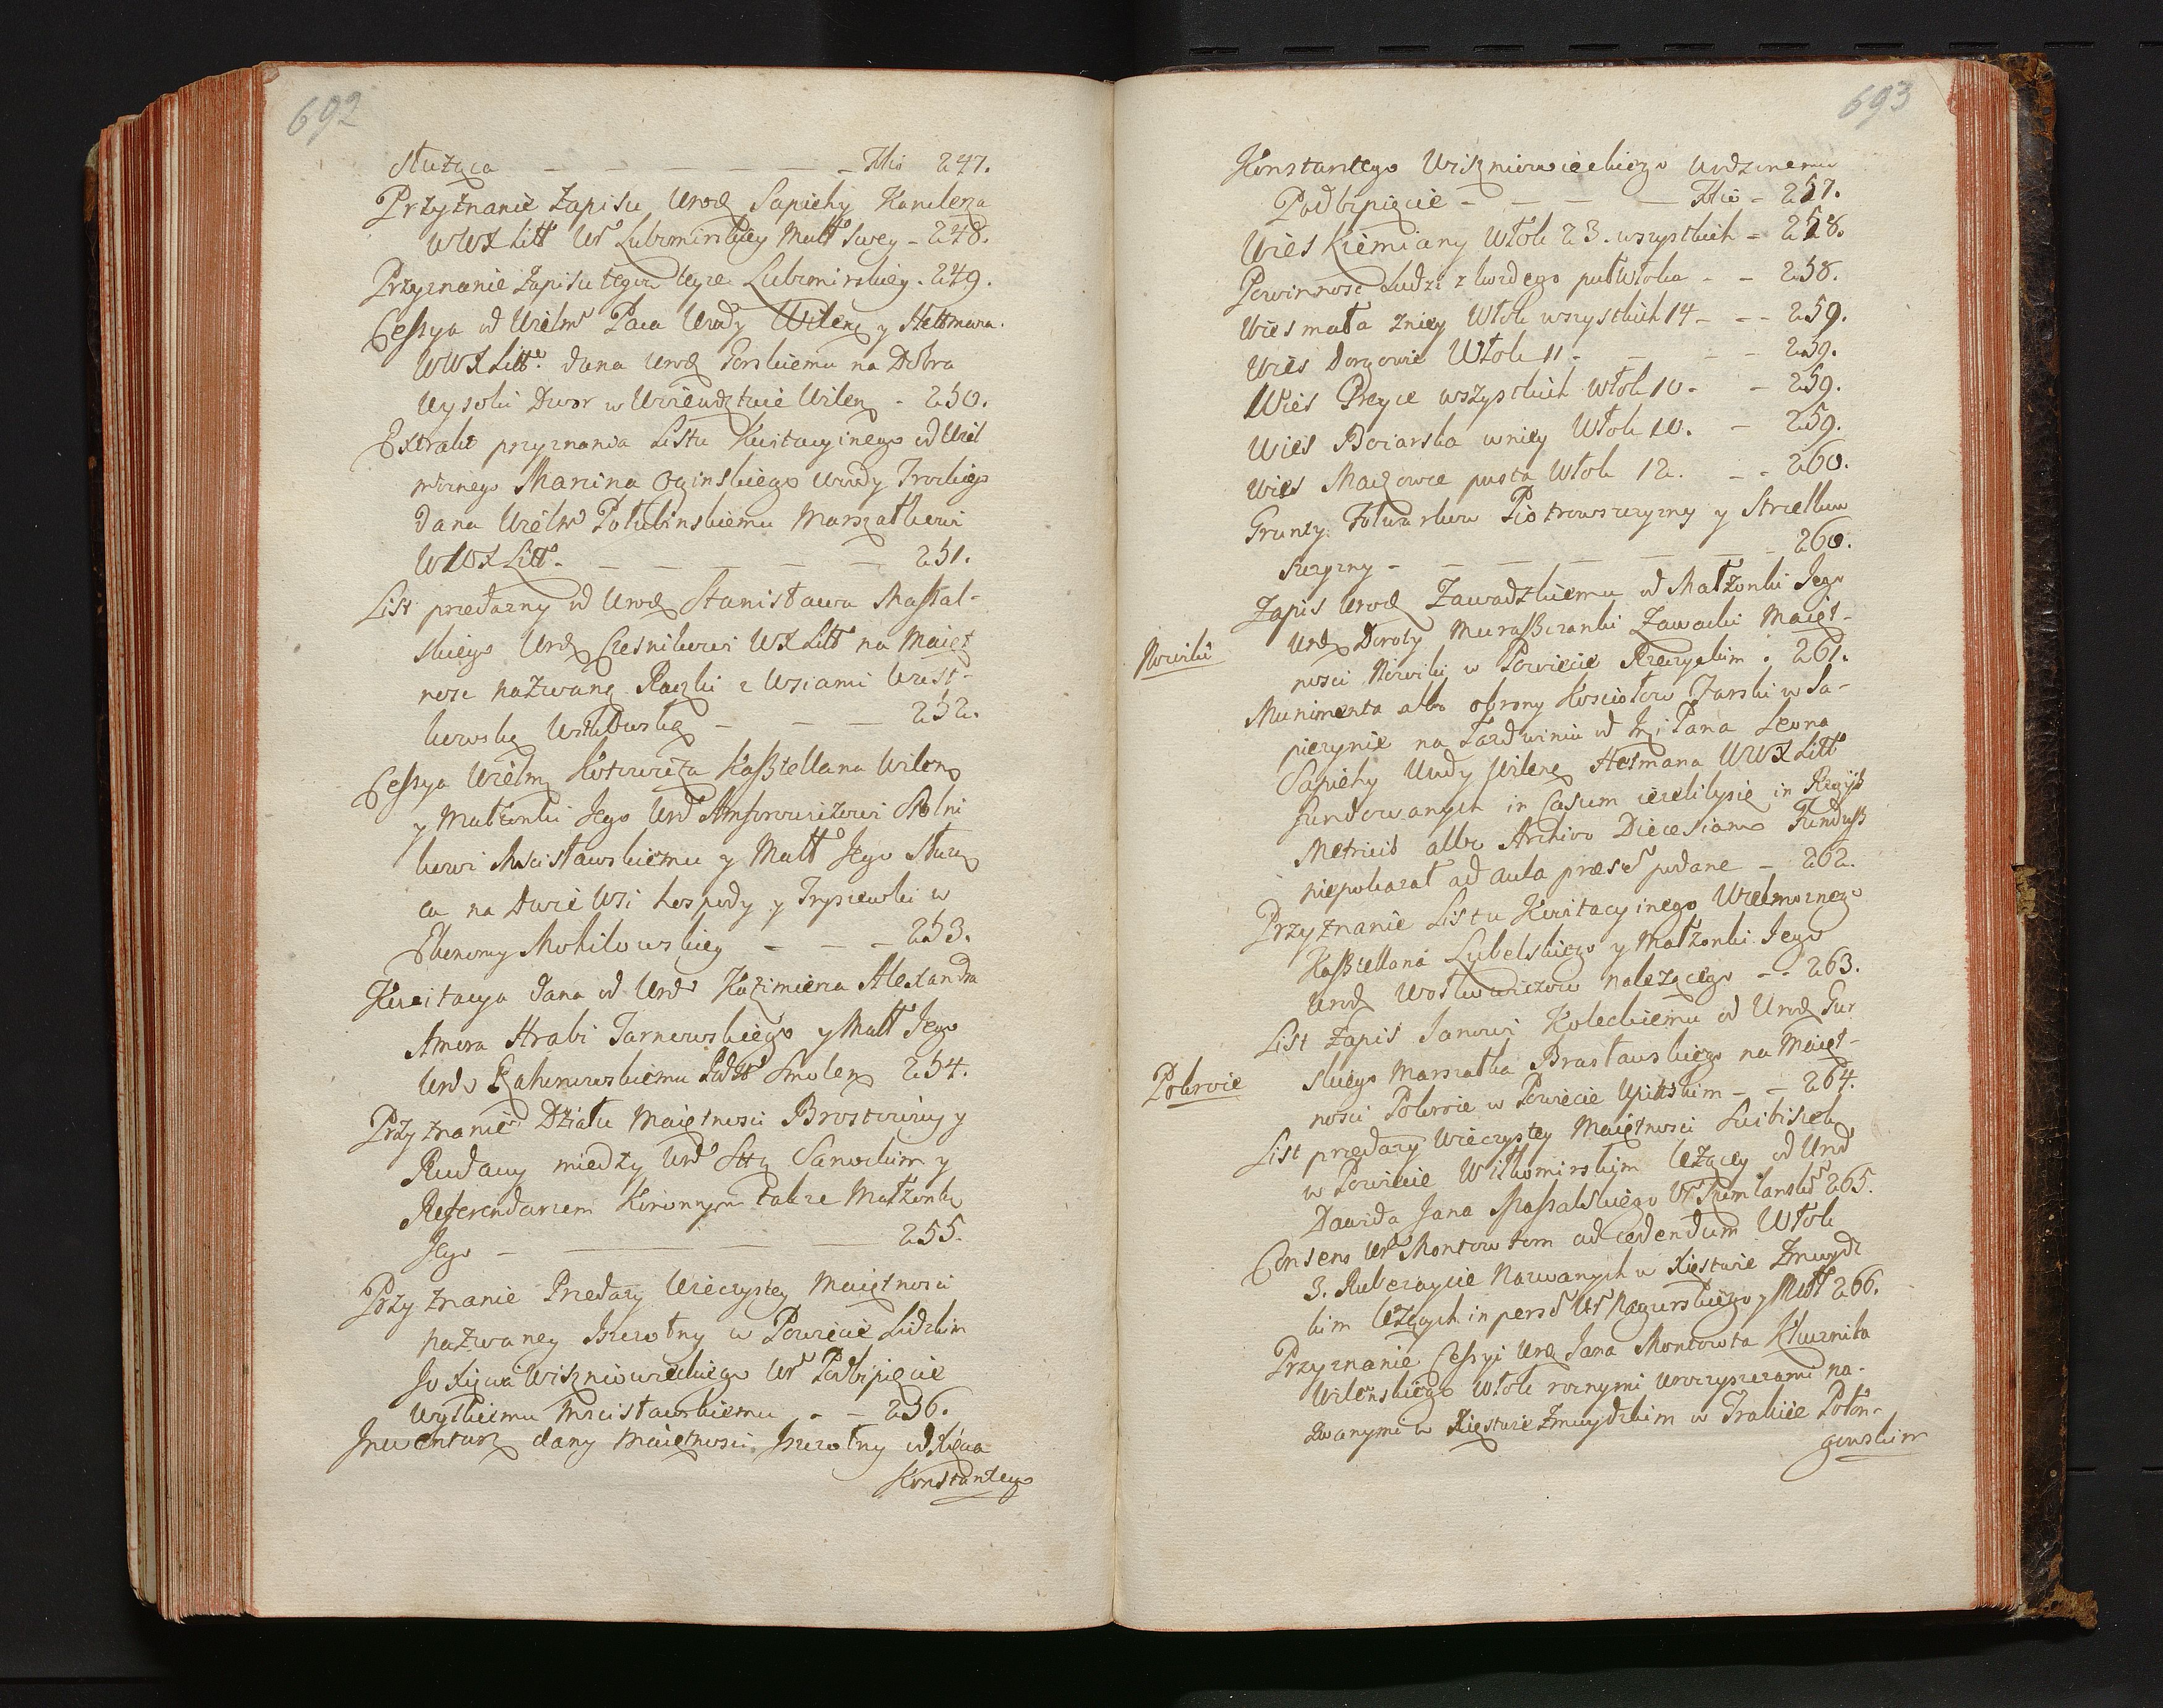 692
służąca — — — — — — Folio 247.
Przyznanie Zapisu Urodz Sapiehy Kanclerza
WWXLitt Ur Lubomirskiey Małt swey - 248.
Przyznanie Zapisu tegoz teyze Lubomirskiey. 249.
Cessya od Wielm Paca Wwdy Wileng y Hettmana
WWXLitt. dana Urodz Gorskiemu na Dobra
Wysoki Dwor w Woiewdztwie Wileng - 250.
Extrakt przyznania Listu Kwitacyinego od Wiel
możnego Marcina Oginskiego Wwdy Trockiego
dana Wielm Połubinskiemu Marszałkowi
WWXLitt. — — — — — 251.
List przedazny od Urodz Stanisława Massal-
skiego Urodz Czesnikowi WXLitt na Maięt
nosc nazwaną Raczki z Wsiami
— — — 252.
Cessya Wielm Kotowicza Kasztellana Wileng
y Małżonki Jego Urd Amforowiczowi Stolni
kowi Mscisławskiemu y Małt Jego służą
ca na Dwie Wsi Hospody y Tryszewki w
Ekonomy Mohilowskiey — — — 253.
Kwitacya dana od Urd Kazimierza Alexandra
Amora Hrabi Tarnowskiego y Małt Jego
Urd Smoleng 254.
Przyznanie Działu Maiętnosci Brostowicy y
Rudawy miedzy Urd Sanockim y
Referendarzem Koronnym także Małzonką
Jego — — — — 255.
Przyznanie Przedazy Wieczystey Maiętnosci
nazwaney Iszczołny w Powiecie Lidzkim
Jo Xięcia Wiszniowieckiego Ur Podbipięcie
Woyskiemu Mscisławskiemu - - 256.
Inwentarz dany Maiętnosci Iszczołny od Xięcia
Konstantego
693
Konstantego Wiszniowieckiego Urdzonemu
Podbipięcie — — — — Folio - 257.
Wies Kiemiany Włok 23. wszystkich - 258.
Powinnosc Ludzi z kazdego pułwłoka - - 258.
Wies mała zniey Włok wszystkich 14 - - - 259.
Wies Dorgowie Włok 11. - - - 259.
Wies Preyce wszystkich Włok 10. - - 259.
Wies Boiarska wniey Włok 10. - 259.
Wies Maczowce pusta Włok 12. - - 260.
Grunty Folwarkow Piotrowszczyzny y Strzelkow
szczyzny - — — — — — 260.
Zapis Urodz Zawadzkiemu od Małżonki Jego
Urdz Doroty Murasczanki Zawacki Maięt-
Norwiki
nosci Norwiki w Powiecie Rzeczyckim . 261.
Munimenta albo obrony Kosciołow Farski w Sa-
pieżynie na Tardwiniu od Jzi Pana Leona
Sapiehy Wwdy Wileng Hetmana WWXLitt
fundowanych in Casum iezelibysie in Regijs
Metricis albo Archivo Diecesiano Fundusz
niepokazał ad aula præsd podane - 262.
Przyznanie Listu Kwitacyinego Wielmoznego
Kasztellana Lubelskiego y Małżonki Jego
Urodz Wołłowiczow należącego - - 263.
List Zapis Janowi Koleckiemu od Urodz Gur
skiego Marszałka Brasławskiego na Maięt-
Pokroie
nosci Pokroie w Powiecie Upitskim - - 264.
List przedazy Wieczystey Maiętnosci Luibiszek
w Powiecie Wiłkomirskim leżącey od Urd
Dawida Jana Massalskiego Ur 265.
Consens Ur Montowtom ad cedendum Włok
3. Rubezaycie Nazwanych w Xięstwie Zmuydz
kim leżących in persd Ur Nagurskiego y Małt 266.
Przyznanie Cessyi Urdz Jana Montowta Klucznika
Wilenskiego Włok roznymi uroczyszczami na-
zwanymi w Xięstwie Zmuydzkim w Trakcie Poton-
gowskim